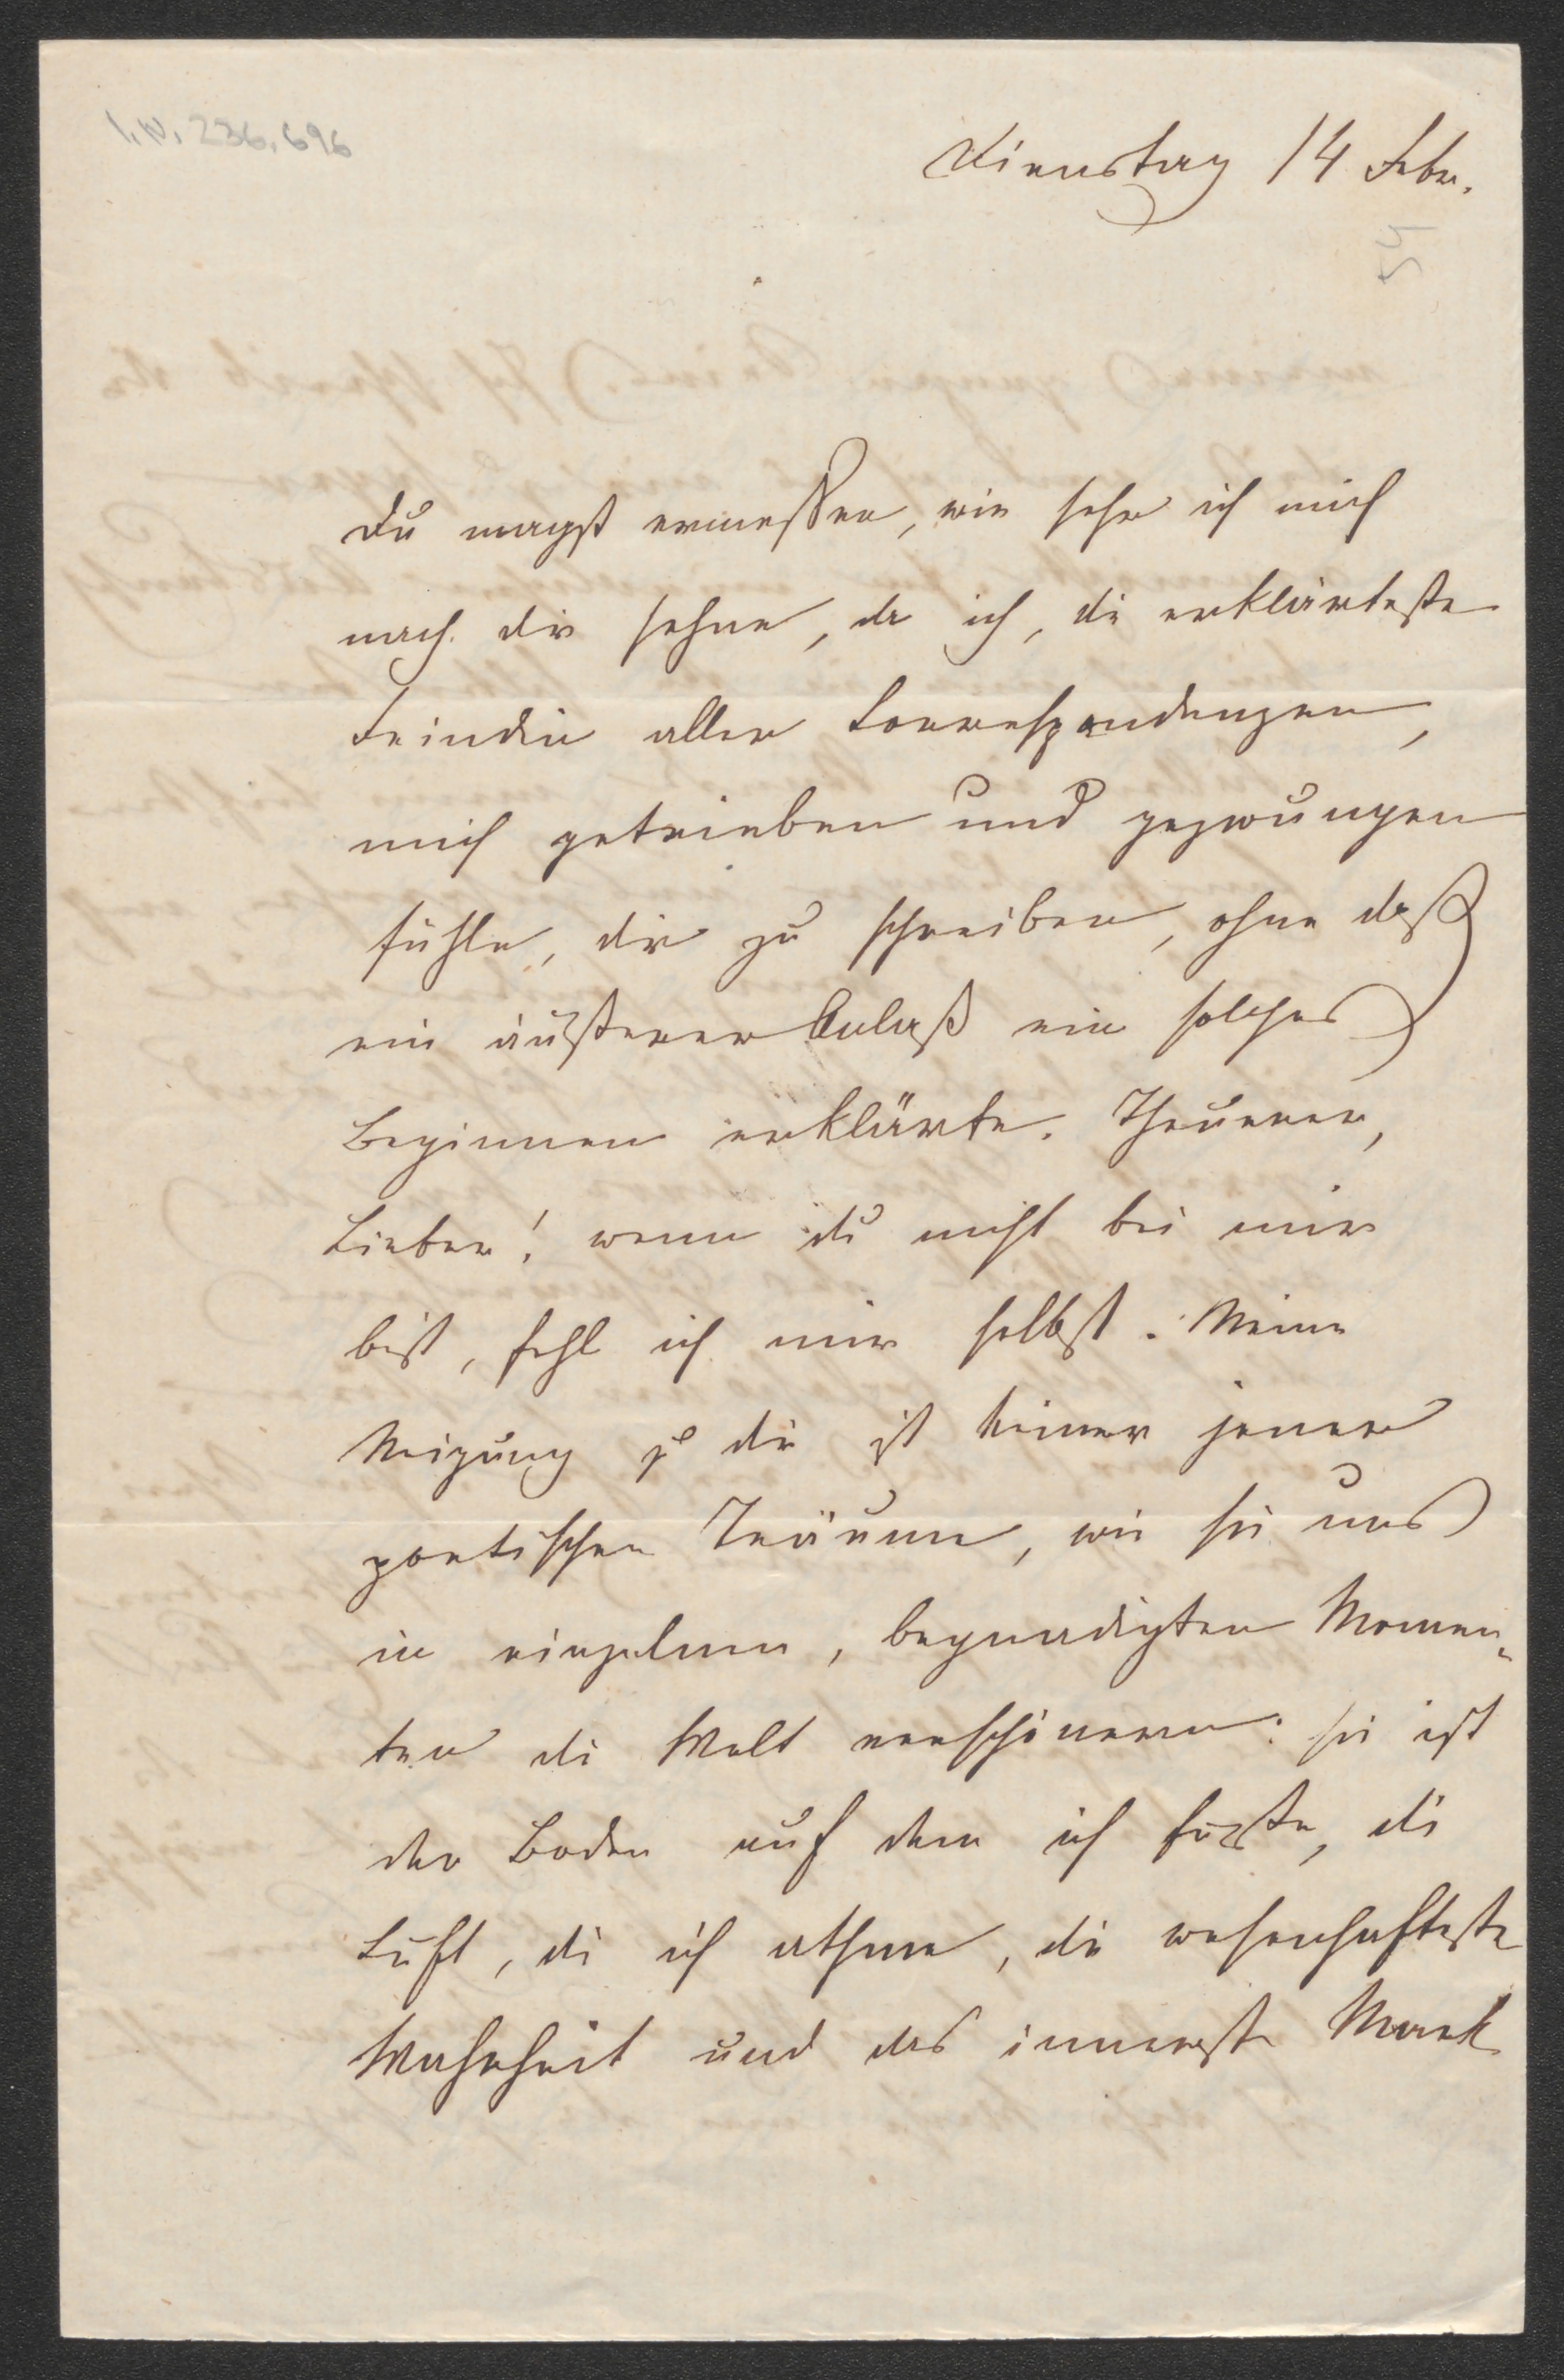 I.N. 236.696
Dienstag 14 Febr.
54
Du magst ermessen, wie sehr ich mich
nach dir sehne, da ich, die erklärteste
Feindin aller Correspondenzen,
mich getrieben und gezwungen
fühle, dir zu schreiben, ohne daß
ein äußerer Anlaß ein solches
Beginnen erklärte. Theurer,
Lieber! wenn du nicht bei mir
bist, fehl ich mir selbst. Meine
Neigung zu dir ist keiner jener
poetischen Träume, wie sie uns
in einzelnen, begnadigten Momen-
ten die Welt verschönern: sie ist
der Boden auf dem ich fußte, die
Luft, die ich athme, die wesenhafteste
Wahrheit und das innerste Mark